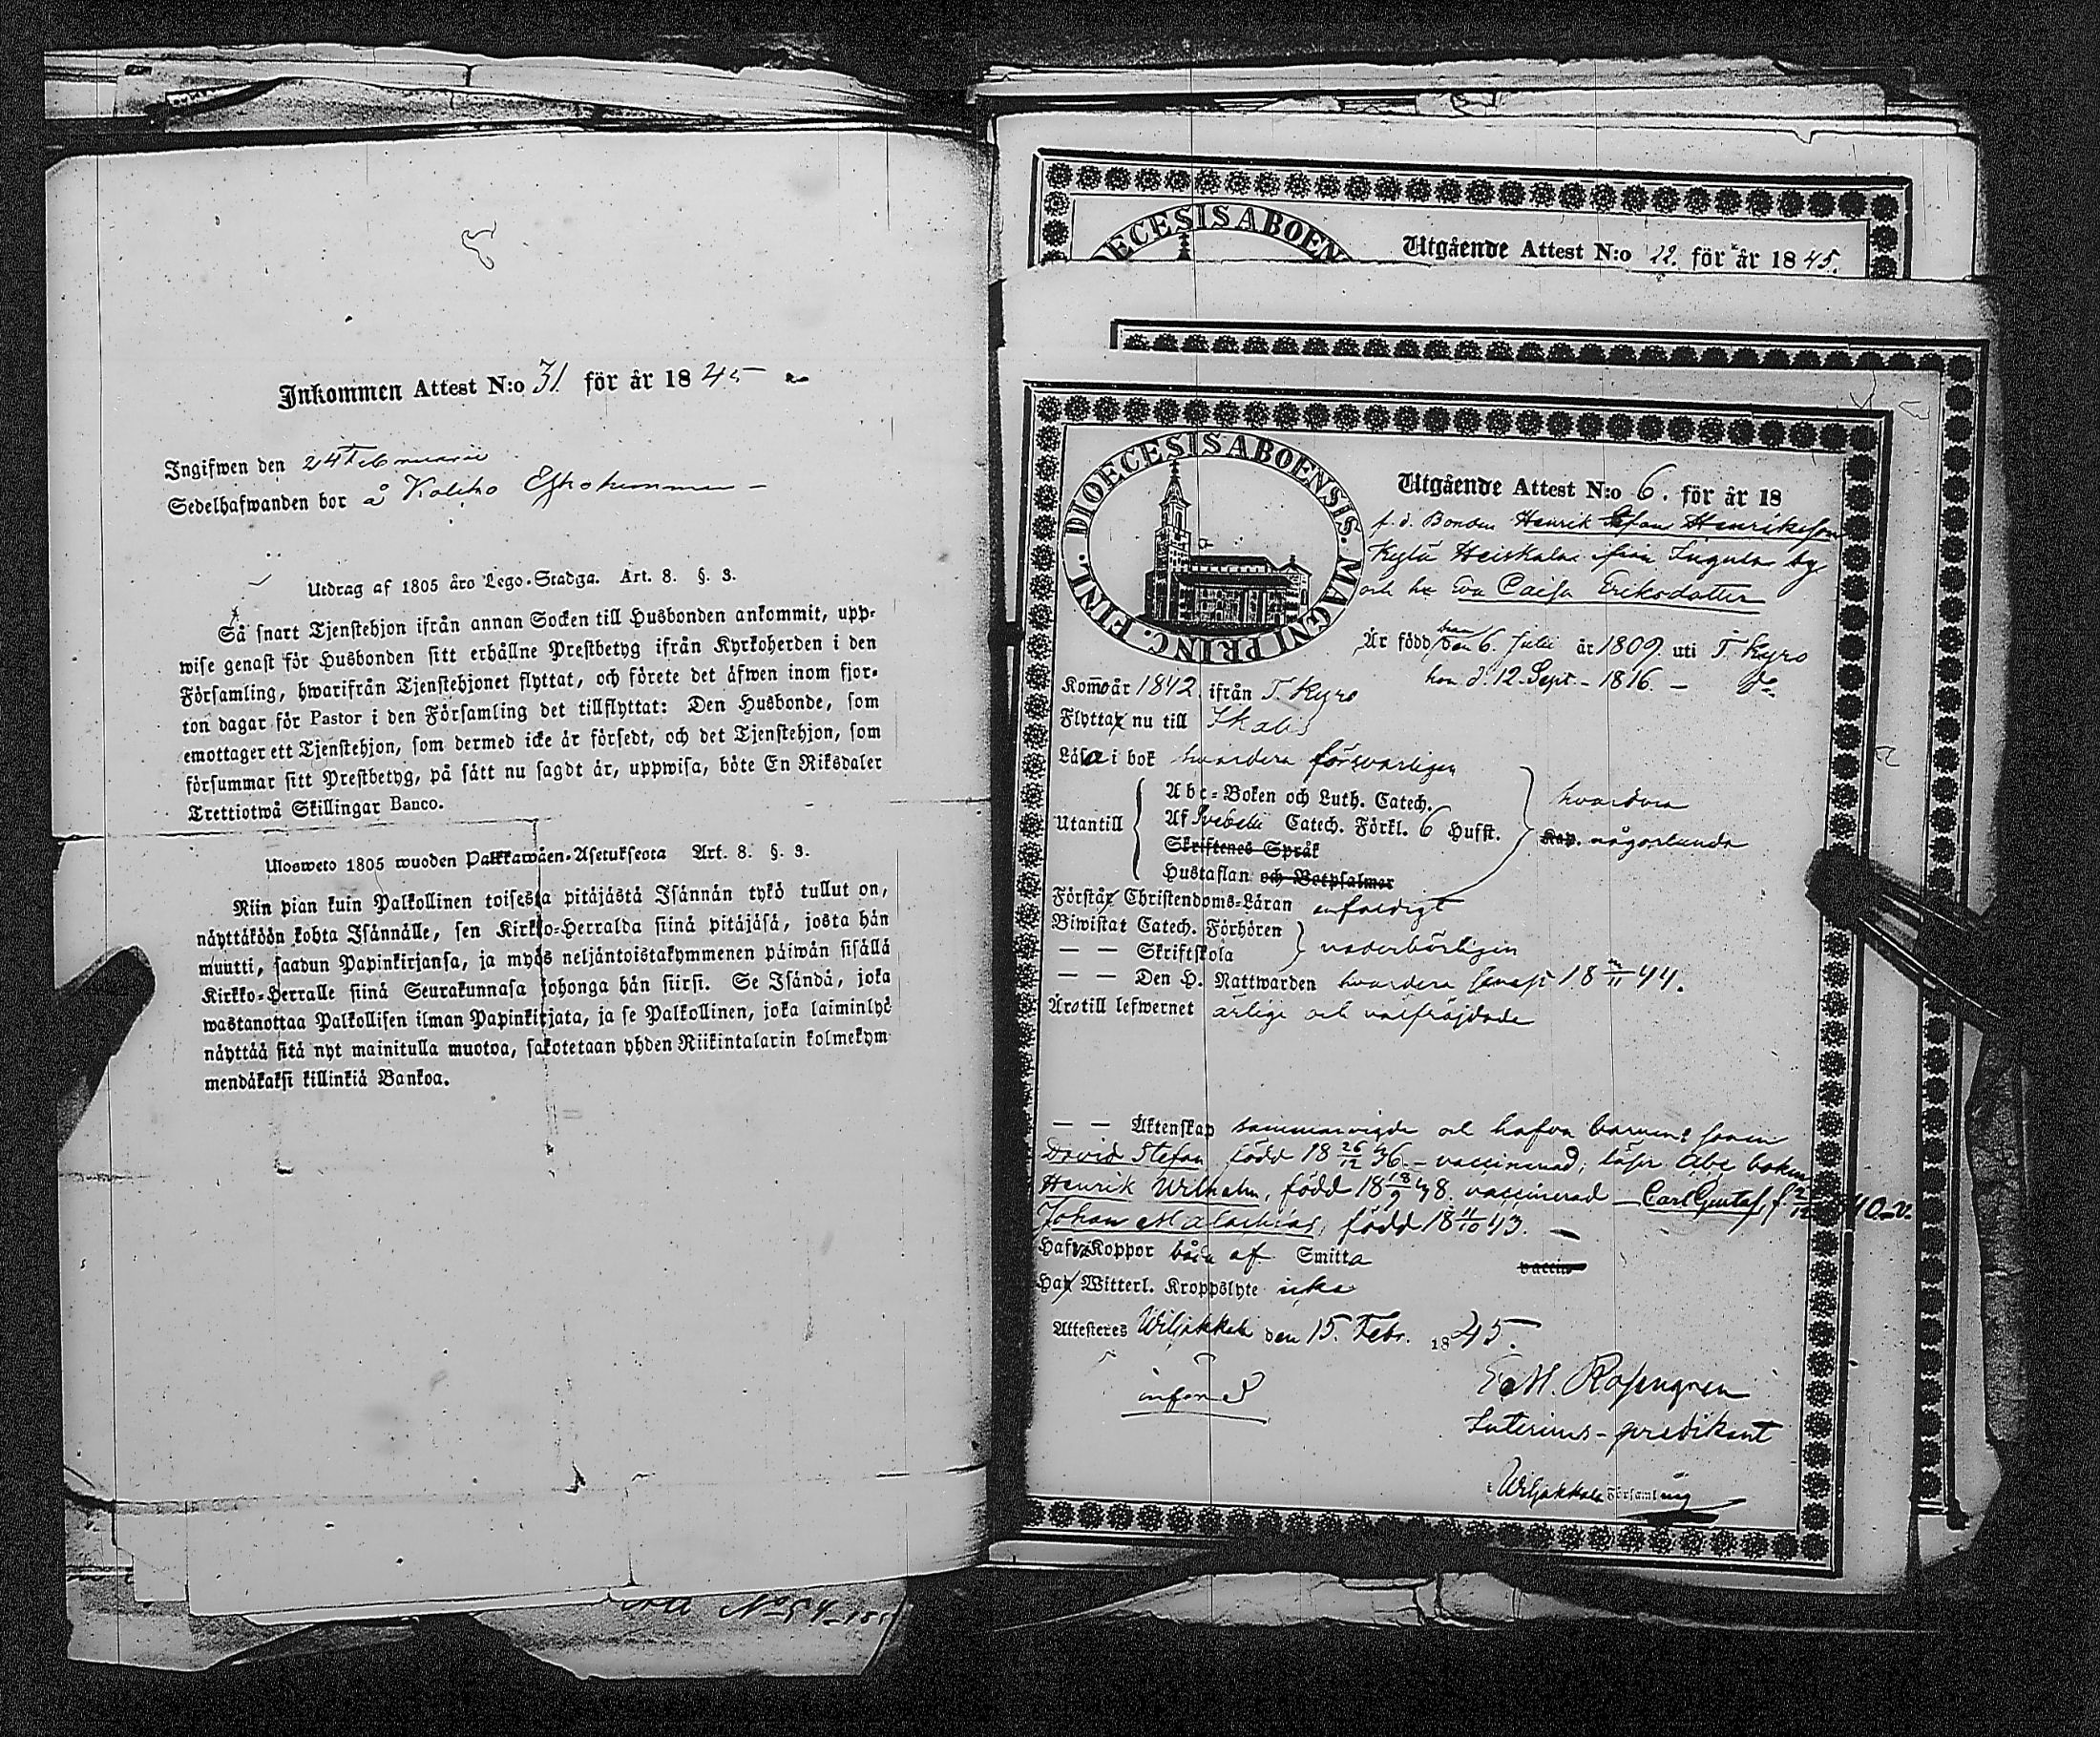 Inkommen Attest N:o 31 för år 1845
Ingifwen den 24 Februarii
Sedelhafwanden bor å
Utdrag af 1805 åro Lego-Stadga. Art. 8. §. 3.
Så snart Tjenstehjon ifrån annan Socken till Husbonden ankommit, upp-
wise genast för Husbonden sitt erhållne Prestbetyg ifrån Kyrkoherden i den
Församling, hwarifrån Tjenstehjonet flyttat, och förete det äfwen inom fjor-
ton dagar för Pastor i den Församling det tillflyttat: Den Husbonde, som
emottager ett Tjenstehjon, som dermed icke är försedt, och det Tjenstehjon, som
försummar sitt Prestbetyg, på sätt nu sagdt är, uppwisa, böte En Riksdaler
Trettiotwå Skillingar Banco.
Ulosweto 1805 wuoden Palkkawäen-Asetukseota Art. 8. §. 3.
Niin pian kuin Palkollinen toisesta pitäjästä Isännän tykö tullut on,
näyttäköön kohta Isännälle, sen Kirkko-Herralda siinä pitäjäsä, josta hän
muutti, saadun Papinkirjansa, ja myös neljäntoistakymmenen päiwän sisällä
Kirkko-Herralle siinä Seurakunnasa johonga hän siirsi. Se Isändä, joka
wastanottaa Palkollisen ilman Papinkirjata, ja se Palkollinen, joka laiminlyö
näyttää sitä nyt mainitulla muotoa, sakotetaan yhden Riikintalarin kolmekym
mendäkaksi killinkiä Bankoa.
No 54-185
DIOECESIS ABOEN
Utgående Attest N:o 22. för år 1845.
DIOECESIS ABOENSIS. MAGNI PRINC. FINL.
Utgående Attest N:o 6. för år 18
f. d. Bonden Henrik Stefan Henriksson
Kylä Heiskala ifrån Inguls by
och hu Eva Caisa Eriksdotter
Är född han den 6. Julii år 1809 uti T. Kyro
hon d. 12. Sept. - 1816. - do
Kommo år 1842 ifrån T. Kyro
Flytta nu till Ikalis
Läsa i bok hvardera försvarligen
Utantill
Abc-Boken och Luth. Catech. hvardera
Af Svebelii Catech. Förkl. 6 Hufst. Kap. någorlunda
Skriftenes Språk
Hustaflan och Botpsalmer
Förstå Christendoms-Läran enfaldigt
Biwistat Catech. Förhören
— — Skriftskola vederbörligen
— — Den H. Nattwarden hvardera senast 18 /11 44.
Äro till lefwernet ärlige och välfräjdade
— — Äktenskap sammanvigde och hafva barnen: sonen
David Stefan född 18 26/12 36. - vaccinerad; läser Abc boken
Henrik Wilhelm, född 18 18/9 38. vaccinerad — Carl Gustaf, f. 40. v.
Johan Malachias, född 18 11/10 43. —
Hafva Koppor båda af Smitta vaccin
Ha Witterl. Kroppslyte icke
Attesteres Wiljakkala den 15. Febr. 1845.
E. M. Rosengren
Interims-predikant
i Wiljakkala Församling